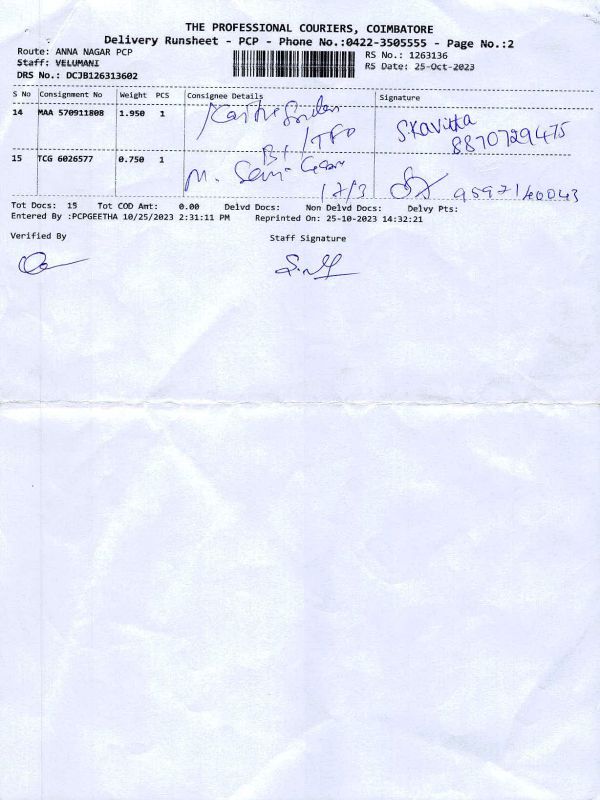 THE PROFESSIONAL COURIERS, COIMBATORE
Delivery Runsheet - PCP - Phone No.:0422-3505555 - Page No.:2
Route: ANNA NAGAR PCP
RS No.: 1263136
Staff: VELUMANI
RS Date: 25-Oct-2023
DRS No.: DCJB126313602
S No Consignment No Weight PCS Consignee Details Signature
14 MAA 570911808 1.950 1 S.Kavitha
8870729475
15 TCG 6026577 0.750 1 M.
Tot Docs: 15 Tot COD Amt: 0.00 Delvd Docs: Non Delvd Docs: Delvy Pts:
Entered By :PCPGEETHA 10/25/2023 2:31:11 PM Reprinted On: 25-10-2023 14:32:21
Verified By Staff Signature